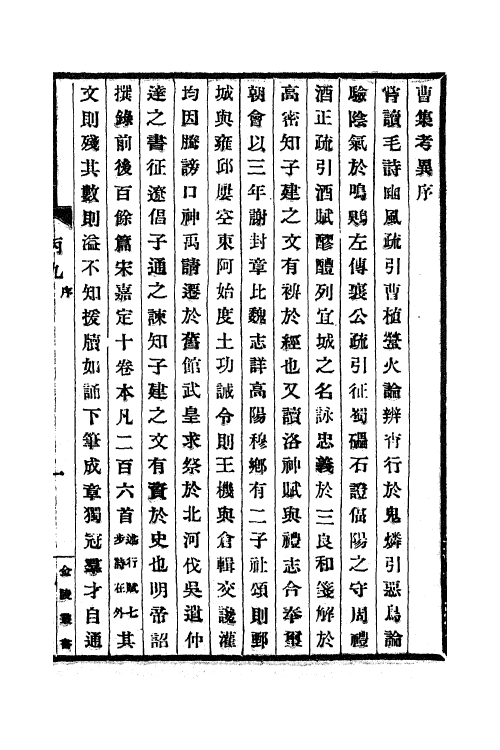 曹集考異序
昔讀毛詩豳風疏引曹植螢火論辨宵行於鬼燐引惡鳥論
驗陰氣於鳴鵙左傳襄公疏引征蜀礧石證偪陽之守周禮
酒正疏引酒賦醪醴列宜城之名詠忠義於三良和箋解於
高密知子建之文有裨於經也又讀洛神賦與禮志合奉璽
朝會以三年謝封章比魏志詳高陽穆鄉有二子社頌則鄄
城與雍邱屢空東阿始度土功誡令則王機與倉輯交讒灌
均因騰謗口神禹請遷於舊館武皇求祭於北河伐吳遣仲
達之書征遼倡子通之諫知子建之文有賚於史也明帝詔
撰錄前後百餘篇宋嘉定十卷本凡二百六首述行賦七步詩在外其
文則殘其數則溢不知援牘如誦下筆成章獨冠羣才自通
丙九
序
一
金陵叢書